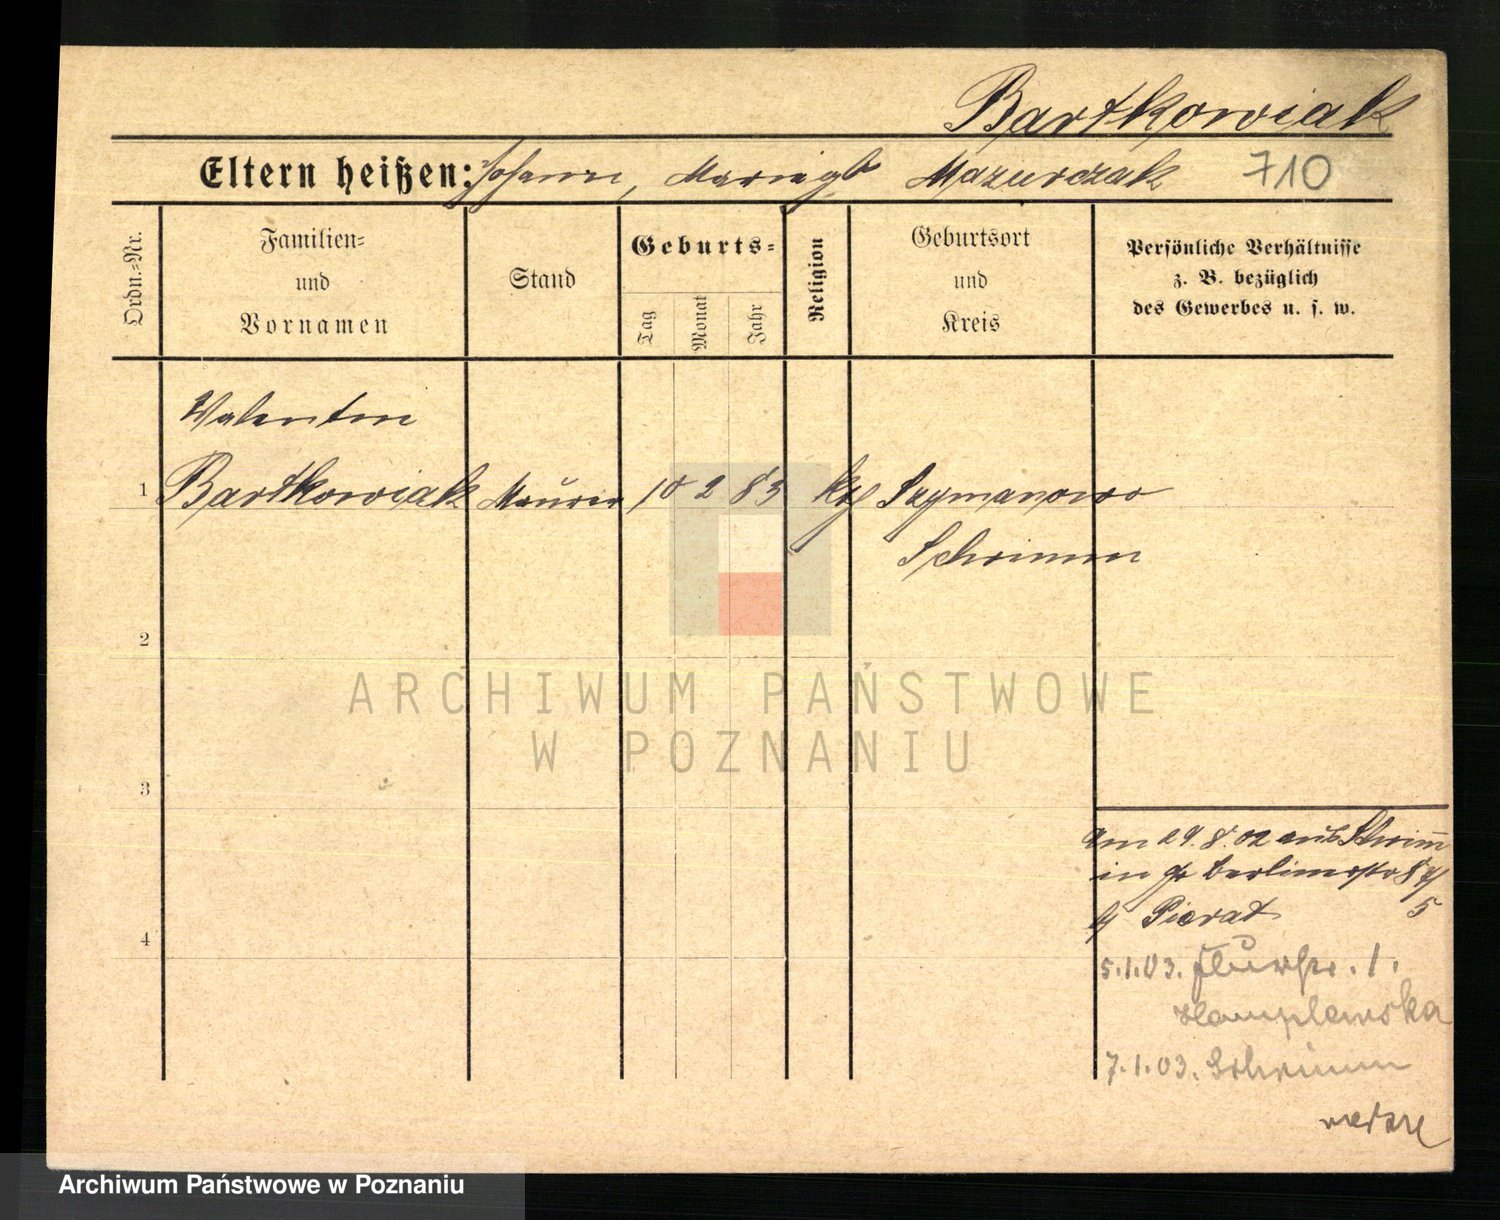 Bartkowiak
Eltern heißen: Johann, Maria gb Mazurczak 710
Ordn.=Nr.
Familien=
und
Vornamen
Stand
Geburts=
Tag
Monat
Jahr
Religion
Geburtsort
und
Kreis
Persönliche Verhältnisse
z. B. bezüglich
des Gewerbes u. s. w.
Valentin
1 Bartkowiak Maurer 10 2 83 kth Szymanowo
Schrimm
2
3
4
Am 29.8.02 aus Schrimm
in gr Berlinerstr 87/
b/ Pierat 5
5.1.03. 1.
7.1.03. Schrimm
ARCHIWUM PAŃSTWOWE
W POZNANIU
Archiwum Państwowe w Poznaniu